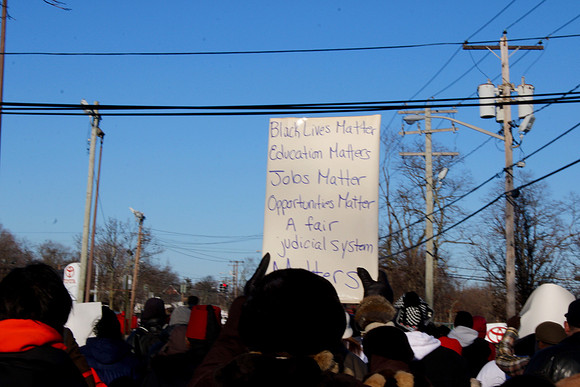 Black Lives Matter
Education Matters
Jobs Matter
Opportunities Matter
A fair
judicial system
Matters